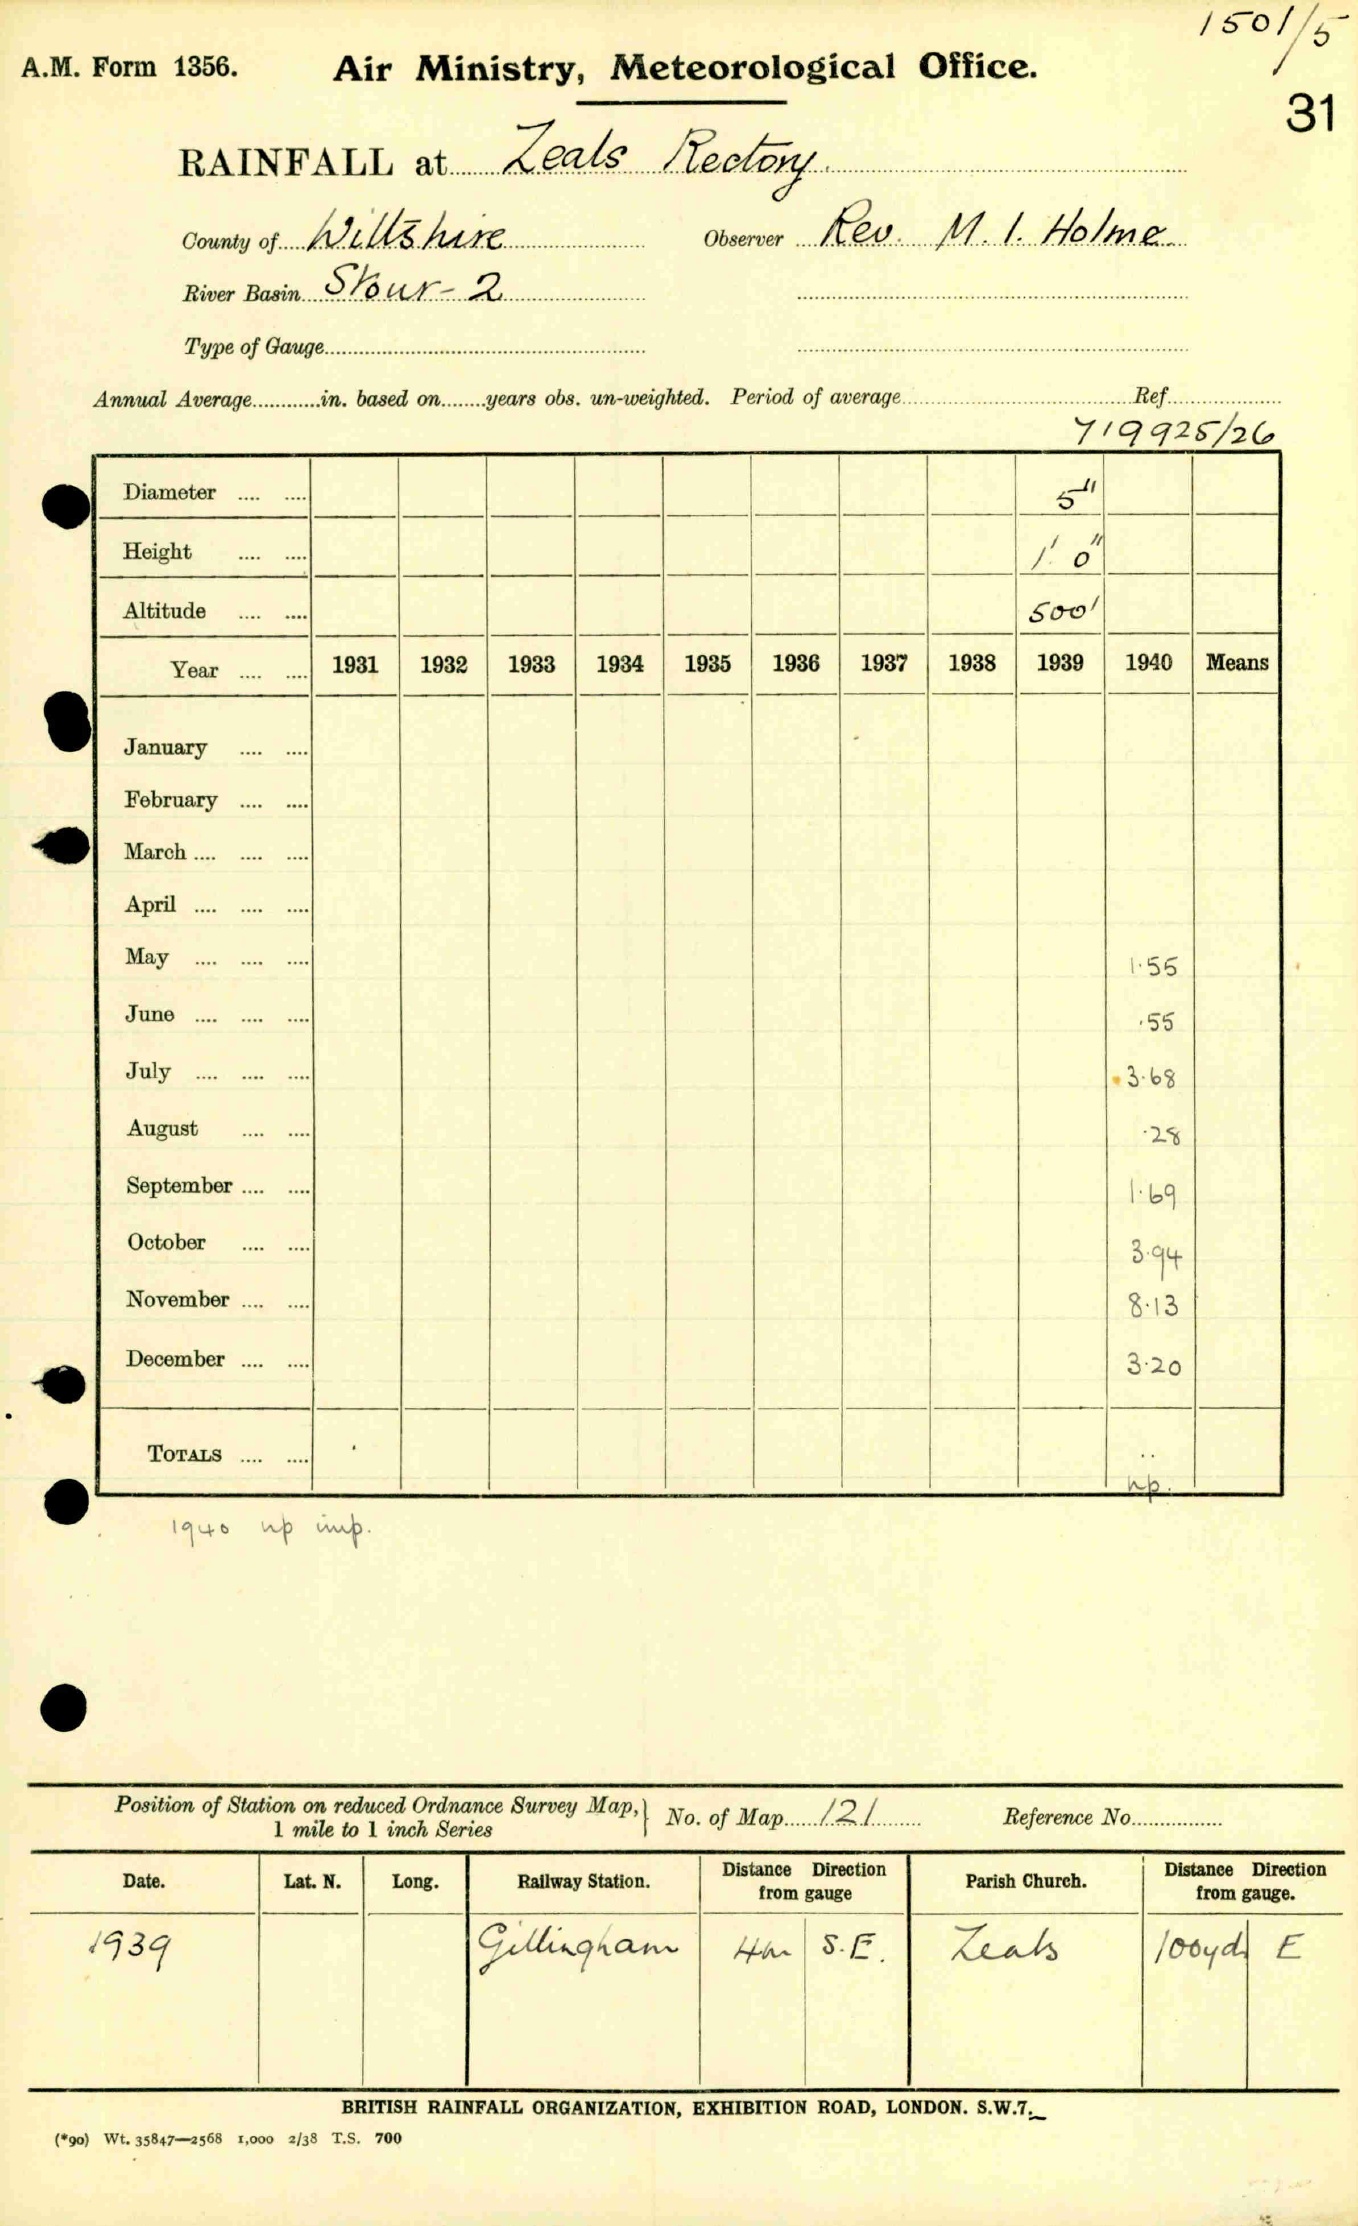 1501/5
A.M. Form 1356.
Air Ministry, Meteorological Office.
31
RAINFALL at Zeals Rectory
County of Wiltshire Observer Rev. M. I. Holme
River Basin Stour - 2
Type of Gauge
Annual Average............in. based on........years obs. un-weighted. Period of average Ref.
719925/26
Diameter .... .... 5"
Height .... .... 1' 0"
Altitude .... .... 500'
Year .... .... 1931 1932 1933 1934 1935 1936 1937 1938 1939 1940 Means
January .... ....
February .... ....
March .... .... ....
April .... .... ....
May .... .... .... 1·55
June .... .... .... ·55
July .... .... .... 3·68
August .... .... ·28
September .... .... 1·69
October .... .... 3·94
November .... .... 8·13
December .... .... 3·20
TOTALS .... .... ..
np.
1940 np imp.
Position of Station on reduced Ordnance Survey Map, } No. of Map 121 Reference No.
1 mile to 1 inch Series
Date. Lat. N. Long. Railway Station. Distance Direction from gauge Parish Church. Distance Direction from gauge.
1939 Gillingham 4m S.E. Zeals 100yds E
BRITISH RAINFALL ORGANIZATION, EXHIBITION ROAD, LONDON. S.W.7.
(*90) Wt. 35847—2568 1,000 2/38 T.S. 700